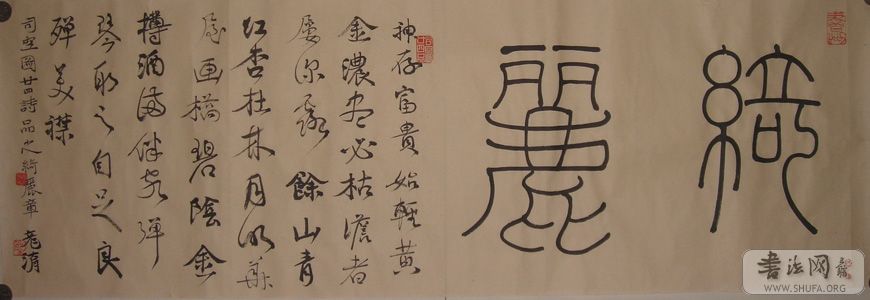 綺麗
神存富貴始輕黃
金濃盡必枯澹者
屢深露餘山青
紅杏在林月明華
屋画橋碧陰金
樽酒滿伴客彈
琴取之自足良
殫美襟
司空圖廿四詩品之綺麗章 老清
書法网
WWW.SHUFA.ORG